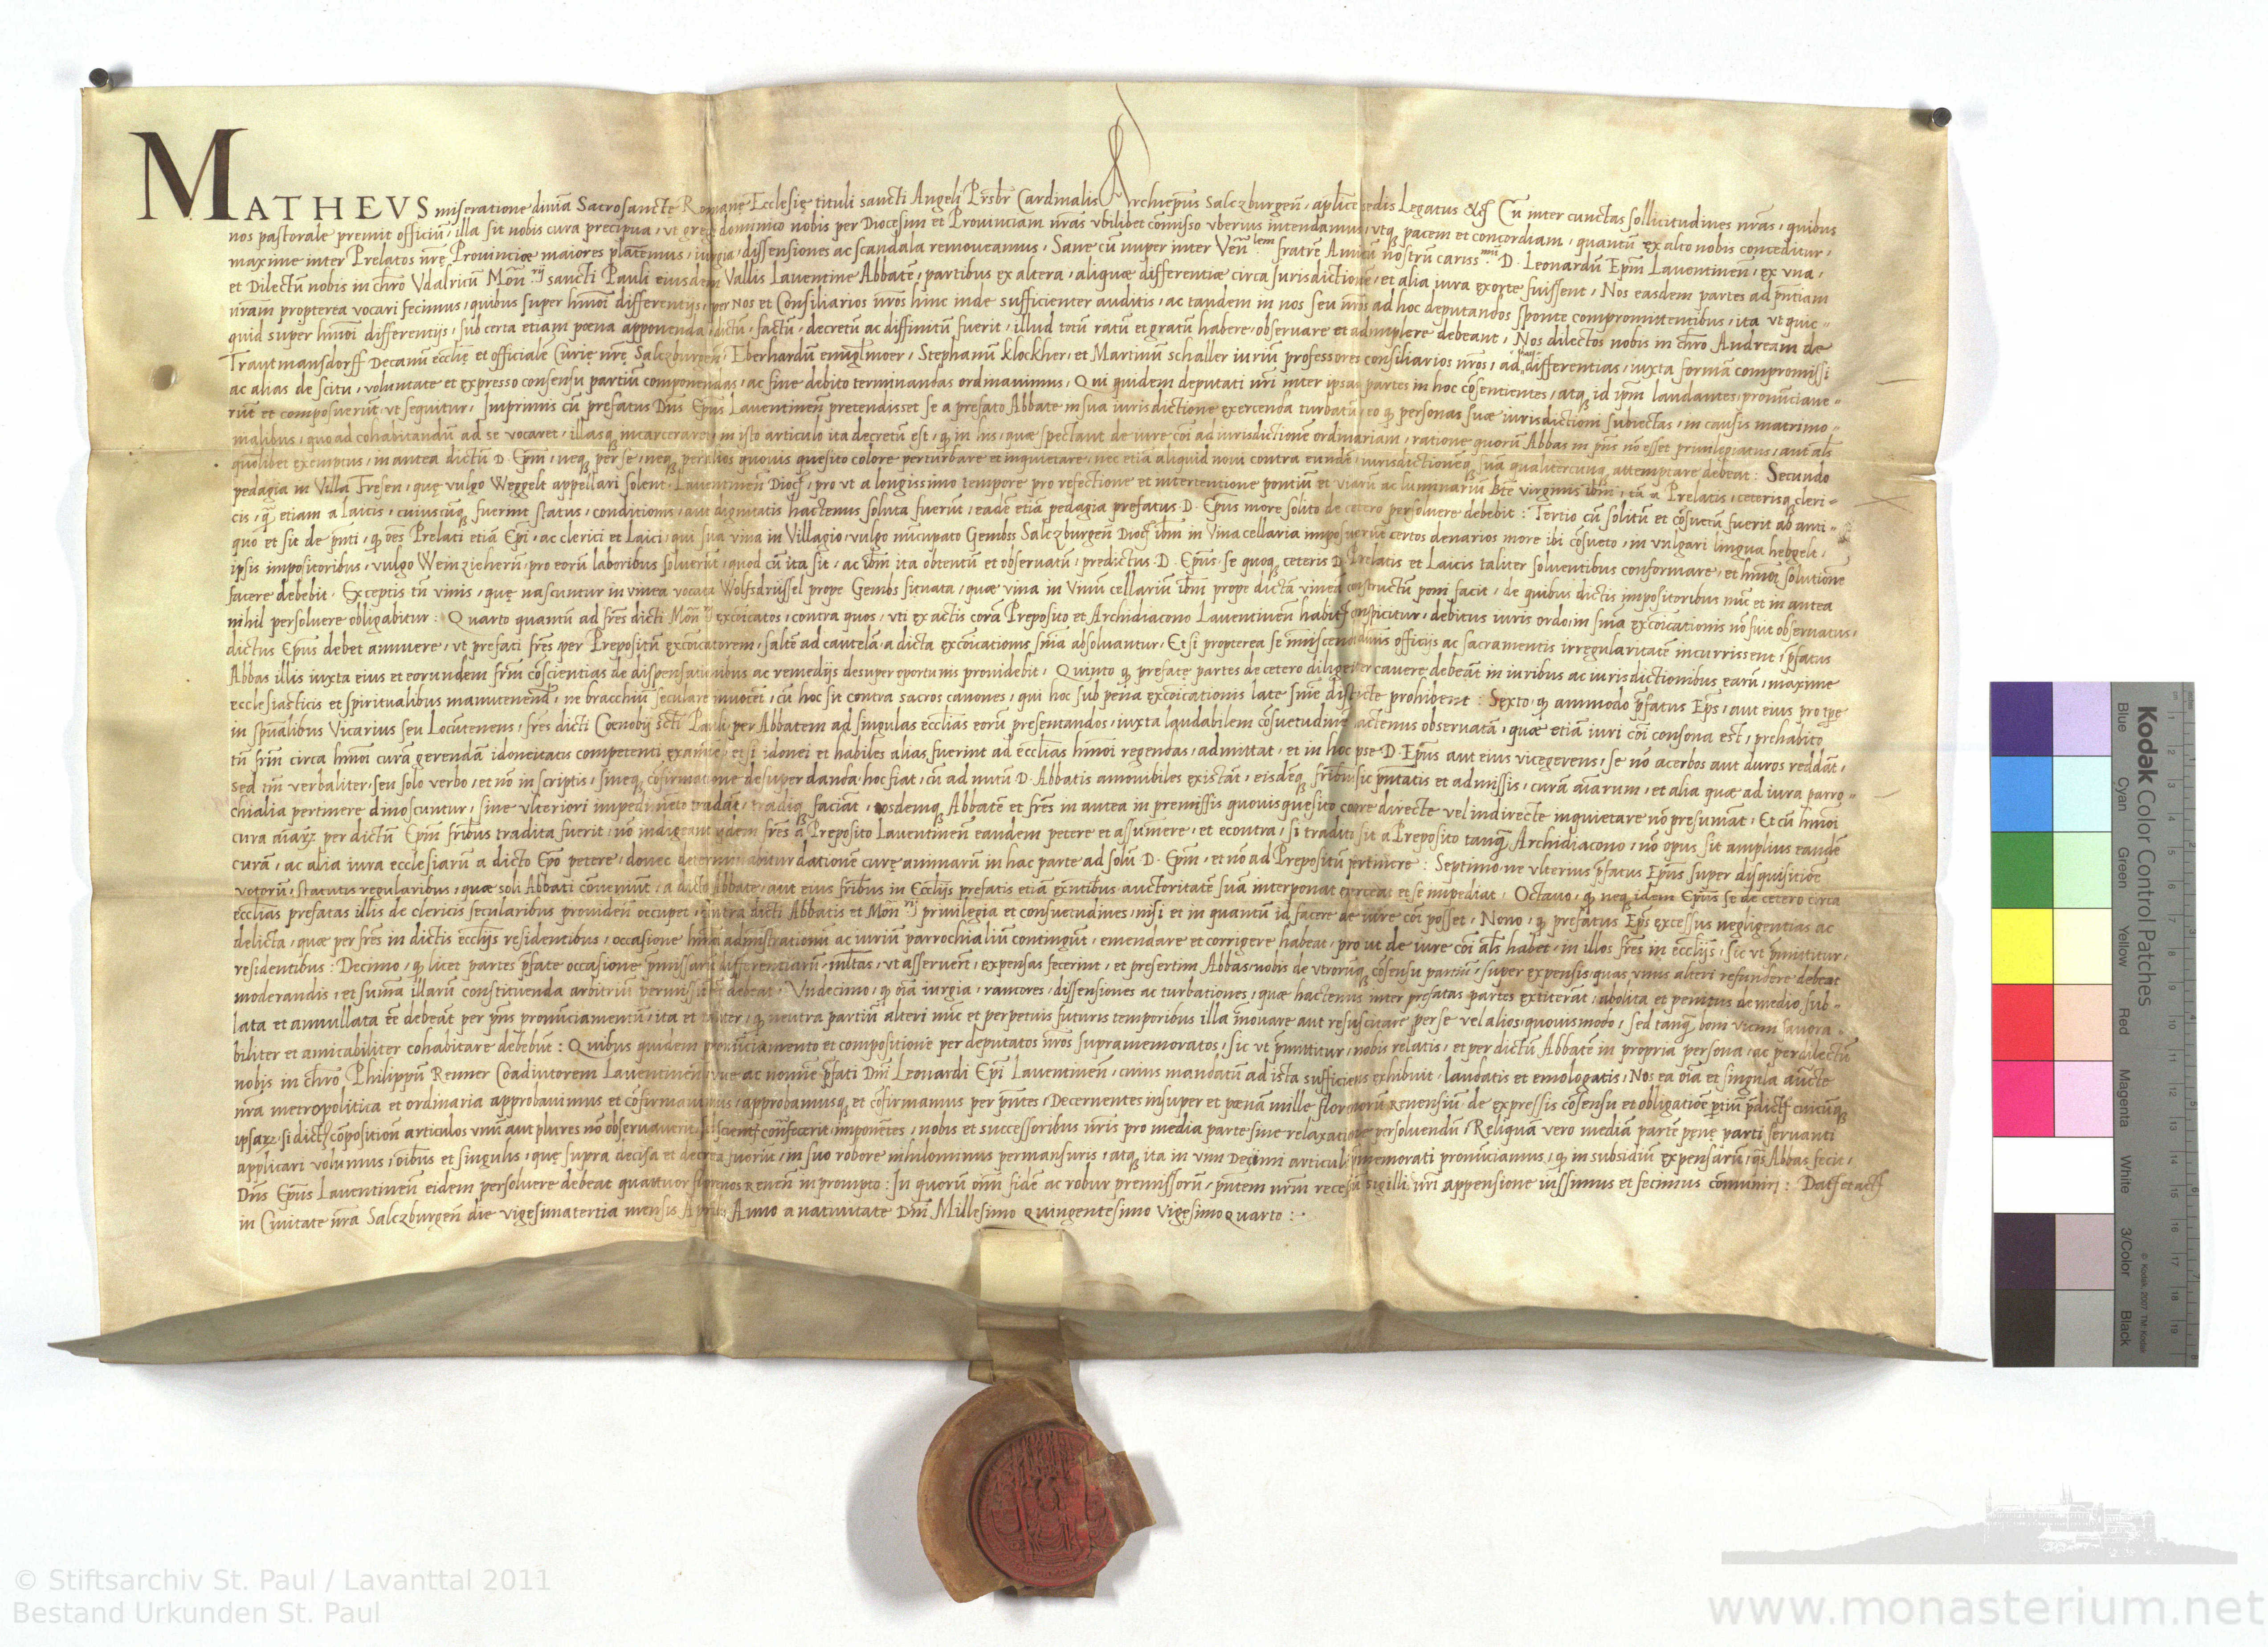 MATHEVS miseratione diuīa Sacrosancte Romanę Ecclesię tituli sancti Angeli Prs̄br Cardinalis Archiep̄us Salczburgeñ, aplīce sedis Legatus &c̄ Cū inter cunctas sollicitudines nr̄as, quibus
nos pastorale premit officiū, illa sit nobis cura precipua, vt grege dominico nobis per Diocesim et Prouinciam nr̄as vbilibet cōmisso vberius intendamus, vtq₃ pacem et concordiam, quantū ex alto nobis conceditur,
maxime inter Prelatos nr̄ę Prouinciæ maiores plātemus, iurgia, dissensiones ac scandala remoueamus, Sane cū nuper inter Veñ.lem fratrē Amicū nostrū cariss.mū D. Leonardū Ep̄m Lauentineñ, ex vna,
et Dilectū nobis in chr̄o Vdalricū Moñ.rij sancti Pauli eiusdem Vallis Lauentine Abbatē, partibus ex altera, aliquæ differentiæ circa Jurisdictionē, et alia iura exorte fuissent, Nos easdem partes ad pn̄tiam
nr̄am propterea vocari fecimus, quibus super hm̄oi differentijs, per nos et Consiliarios nr̄os hinc inde sufficienter auditis, ac tandem in nos seu nr̄os ad hoc deputandos sponte compromittentibus, ita vt quic-
quid super hm̄oi differentijs, sub certa etiam pœna apponenda, dictū, factū, decretū ac diffinitū fuerit, illud totū ratū et gratū habere, obseruare et adimplere debeant, Nos dilectos nobis in chr̄o Andream de
Trautmansdorff Decanū ecclīę et officialē Curie nr̄ę Salczburgeñ, Eberhardū Stephanū Klockher, et Martinū schaller iuriū professores consiliarios nr̄os, ad differentias, iuxta formā compromissi
ac alias de scitu, voluntate et expresso consensu partiū componendas, ac fine debito terminandas ordinauimus, Qui quidem deputati nr̄i inter ipsas partes in hoc cōsentientes, atq₃ id ip̄m laudantes, pronūciaue-
rūt et composuerūt vt sequitur, Inprimis cū prefatus Dn̄s Ep̄us Lauentineñ pretendisset se a prefato Abbate in sua iurisdictione exercenda turbatū, eo q₃ personas suæ iurisdictioni subiectas, in causis matrimo-
nialibus, quoad cohabitandū ad se vocaret, illasq₃ incarceraret, in isto articulo ita decretū est, q₃ in his, quæ spectant de iure cōi ad iurisdictionē ordinariam, ratione quorū Abbas in pn̄s nō esset priuilegiatus, aut al̄s
quōlibet exemptus, in antea dictū D. Ep̄m, neq₃ per se, neq₃ per alios quouis quesito colore perturbare et inquietare, nec etiā aliquid noui contra eundē, iurisdictionēq₃ suā qualitercunq₃ attemptare debeat: Secundo
pedagia in Villa Fresen, quę vulgo Weggelt appellari solent, Lauentineñ Dioc̄, pro vt a longissimo tempore pro refectione et intertentione pontiū et viarū ac luminariū bt̄e virginis ibm̄, tā a Prelatis, ceterisq₃ cleri-
cis, q₃ etiam a laicis, cuiuscūq₃ fuerint status, conditionis, aut dignitatis hactenus soluta fuerūt, eadē etiā pedagia prefatus D. Ep̄us more solito de cetero persoluere debebit: Tertio cū solitū et cōsuetū fuerit ab anti-
quo et sit de pn̄ti, q₃ oēs Prelati etiā Ep̄i, ac clerici et Laici, qui sua vina in Villagio, vulgo nūcupato Gembss Salczburgeñ Dioc̄ ibm̄ in Vina cellaria imposuerūt certos denarios more ibi cōsueto, in vulgari lingua hebgelt,
ipsis impositoribus, vulgo Weinzieherū, pro eorū laboribus soluerūt, quod cū ita sit, ac ibm̄ ita obtentū et obseruatū, predictus D. Ep̄us se quoq₃ ceteris D. Prelatis et Laicis taliter soluentibus conformare, et hm̄oi solutione
facere debebit. Exceptis tn̄ vinis, quę nascuntur in vinea vocata Wolfsdrüssel prope Gembs situata, quæ vina in Vnū cellariū ibm̄ prope dictā vineā constructū poni facit, de quibus dictis impositoribus nūc et in antea
nihil persoluere obligabitur: Quarto quantū ad fr̄es dicti Moñ.rij excōicatos, contra quos, vti ex actis corā Preposito et Archidiacono Lauentineñ habitis conspicitur, debitus iuris ordo, in sn̄ia excōicationis nō fuit obseruatus,
dictus Ep̄us debet annuere, vt prefati fr̄es per Prepositū excōicatorem, saltē ad cautelā a dicta excōicationis sn̄ia absoluantur, Et si propterea se īmiscendo diuinis officijs ac sacramentis irregularitatē incurrissent, p̄fatus
Abbas illis iuxta eius et eorundem fr̄m cōscientias de dispensationibus ac remedijs desuper oportunis prouidebit, Quinto q₃ prefate partes de cetero diligenter cauere debeāt in iuribus ac iurisdictionibus earū, maxime
ecclesiasticis et spiritualibus manutenend̄, ne bracchiū seculare inuocēt, cū hoc sit contra sacros canones, qui hoc sub pena excōicationis late sn̄ie districte prohibent: Sexto, q₃ ammodo p̄fatus Ep̄s, aut eius pro tp̄e
in spūalibus Vicarius seu Locūtenens, fr̄es dicti Cœnobij sc̄ti Pauli per Abbatem ad singulas eccl̄ias eorū presentandos, iuxta laudabilem cōsuetudinē hactenus obseruatā, quæ etiā iuri cōi consona est, prehabito
tn̄ fr̄m circa hm̄oi curā gerendā idoneitatis competenti examine, et si idonei et habiles alias fuerint ad eccl̄ias hm̄oi regendas, admittat, et in hoc ipse D. Ep̄us aut eius vicegerens, se nō acerbos aut duros reddāt,
sed tm̄ verbaliter, seu solo verbo, et nō in scriptis, sineq₃ cōfirmatione desuper danda hoc fiat, cū ad nutū D. Abbatis amouibiles existāt, eisdēq₃ fr̄ibus sic pn̄tatis et admissis, curā aīarum, et alia quæ ad iura parro-
chialia pertinere dinoscuntur, sine vlteriori impedimēto tradāt, tradiq₃ faciāt, eosdemq₃ Abbatē et fr̄es in antea in premissis quouis quesito colore directe vel indirecte inquietare nō presumāt, Et cū hm̄oi
cura aīarꝝ per dictū Ep̄m fr̄ibus tradita fuerit, nō indigeant ijdem fr̄es a Preposito Lauentineñ eandem petere et assumere, et econtra, si tradita sit a Preposito tanq₃ Archidiacono, nō opus sit amplius eandē
curā, ac alia iura ecclesiarū a dicto Ep̄o petere, donec determinabitur dationē curę animarū in hac parte ad solū D. Ep̄m, et nō ad Prepositū pertinere: Septimo, ne vlterius p̄fatus Ep̄us super disquisitiōe
votorū, statutis regularibus, quæ soli Abbati cōueniūt, a dicto Abbate, aut eius fr̄ibus in Eccl̄ijs prefatis etiā exn̄tibus auctoritatē suā interponat exerceat et se impediat, Octauo, q₃ neq₃ idem Ep̄us se de cetero circa
eccl̄ias prefatas illis de clericis secularibus prouideñ occupet, contra dicti Abbatis et Moñ.rij priuilegia et consuetudines, nisi et in quantū id facere de iure cōi posset, Nono, q₃ prefatus Ep̄s excessus negligentias ac
delicta, quæ per fr̄es in dictis eccl̄ijs residentibus, occasione hm̄oi administrationū ac iuriū parrochialiū contingūt, emendare et corrigere habeat, pro ut de iure cōi al̄s habet, in illos fr̄es in eccl̄ijs, sic vt p̄mittitur,
residentibus: Decimo, q₃ licet partes p̄fate occasione p̄missarū differentiarū, mltas, vt asseruerūt, expensas fecerint, et presertim Abbas, nobis de vtrorūq₃ cōsensu partiū, super expensis, quas vnus alteri refundere debeat
moderandis, et sum̄a illarū constituenda arbitriū permissum debeat, Vndecimo, q₃ oīa iurgia, rancores, dissensiones ac turbationes, quæ hactenus inter prefatas partes extiterāt, abolita et penitus de medio sub-
lata et annullata eē debeāt per pn̄s pronūciamentū, ita et taliter, q₃ neutra partiū alteri nūc et perpetuis futuris temporibus illa īnouare aut resuscitare per se vel alios, quouismodo, sed tanq₃ boni vicini fauora-
biliter et amicabiliter cohabitare debebūt: Quibus quidem pronūciamento et compositione per deputatos nr̄os supramemoratos, sic vt p̄mittitur, nobis relatis, et per dictū Abbatē in propria persona, ac per dilectū
nobis in chr̄o Philippū Renner Coadiutorem Lauentineñ, vice ac nomine p̄fati Dn̄i Leonardi Ep̄i Lauentineñ, cuius mandatū ad ista sufficiens exhibuit, laudatis et emologatis, Nos ea oīa et singula aucte
nr̄a metropolitica et ordinaria approbauimus et cōfirmauimus, approbamusq₃ et cōfirmamus per pn̄tes, Decernentes insuper et pœnam mille florenorū Renensiū de expressis cōsensu et obligatiōe ptiū p̄dict̄ cuicūq₃
ipsarꝝ, si dict̄ cōpositionū articulos vnū aut plures nō obseruauerit, imponētes, nobis et successoribus nr̄is pro media parte sine relaxatione persoluendū, Reliquam vero mediā partē pęnę parti seruanti
applicari volumus, oībus et singulis, quę supra decisa et decreta fuerūt, in suo robore nihilominus permansuris, atq₃ ita in vim Decimi articuli p̄memorati pronūciamus, q₃ in subsidiū expensarū, q̄s Abbas fecit,
Dn̄s Ep̄us Lauentineñ eidem persoluere debeat quattuor florenos Reneñ in prompto: In quorū oīm fidē ac robur premissorū, pn̄tem nr̄m recessū sigilli nr̄i appensione iussimus et fecimus cōmuniri: Dat̄ et act̄
in Ciuitate nr̄a Salczburgeñ die vigesimatertia mensis Aprilis Anno a natiuitate Dn̄i Millesimo Quingentesimo Vigesimoquarto:.
Kodak Color Control Patches
Blue Cyan Green Yellow Red Magenta White 3/Color Black
© Kodak, 2007 TM: Kodak
© Stiftsarchiv St. Paul / Lavanttal 2011
Bestand Urkunden St. Paul
www.monasterium.net